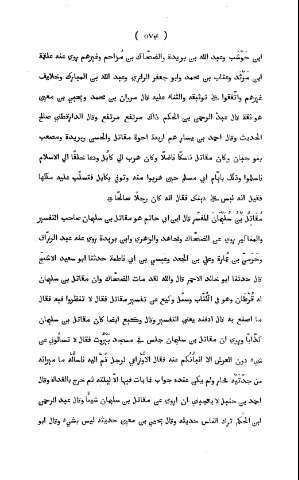 ( ٥٧٤ )
ابى حوشب وعبد الله بن بريدة والضحاك بن مزاحم وغيرهم روى عنه علقمة
بن مرثد وعتاب بن محمد وابو جعفر الرازى وعبد الله بن المبارك وخلايق
غيرهم واتفقوا على توثيقه والثناء عليه قال مروان بن محمد ويحيى بن معين
هو ثقة قال عبد الرحمن بن الحكم ذاك مرتفع مرتفع وقال الدارقطنى صالح
الحديث وقال احمد بن سيار هم اربعة اخوة مقاتل والحسن ويزيد ومصعب
بنو حيان وكان مقاتل ناسكا فاضلا وكان هرب الى كابل ودعا خلقا الى الاسلام
فاسلموا وذلك بايام ابى مسلم حين هربوا منه وتوفى بكابل فتسلب عليه ملكها
فقيل انه ليس على دينك فقال انه كان رجلا صالحا
مقاتل بن سليمان المفسر قال ابن ابى حاتم هو مقاتل بن سليمان صاحب التفسير
والمناكير روى عن الضحاك ومجاهد والزهرى وابن بريدة روى عنه عبد الرزاق
وحرمى بن عمارة وعلى بن الجعد وعيسى بن ابى فاطمة حدثنا ابو سعيد الاشج
قال حدثنا ابو خالد الاحمر قال والله لقد مات الضحاك وان مقاتل بن سليمان
له قرطان وهو فى الكتاب وسئل وكيع عن تفسير مقاتل فقال لا تنظروا فيه فقال
ما اصنع به قال ادفنه يعنى التفسير وقال وكيع ايضا كان مقاتل بن سليمان
كذابا وروى ان مقاتل بن سليمان جلس فى مسجد بيروت فقال لا تسئلونى عن
شىء دون العرش الا انبأتكم عنه فقال الاوزاعى لرجل قم اليه فاسأله ما ميراثه
من جدتيه فحار ولم يكن عنده جواب فما بات فيها الا ليلة ثم خرج بالغداة وقال
احمد بن حنبل لا يعجبنى ان اروى عن مقاتل بن سليمان شيئا وقال عبد الرحمن
بن الحكم ترك الناس حديثه وقال يحيى بن معين حديثه ليس بشىء وقال ابو